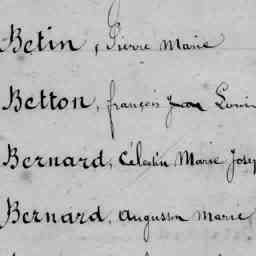 Betin, Pierre Marie
Betton, françois Jean Louis
Bernard, Célestin Marie Josep
Bernard, augustin Marie